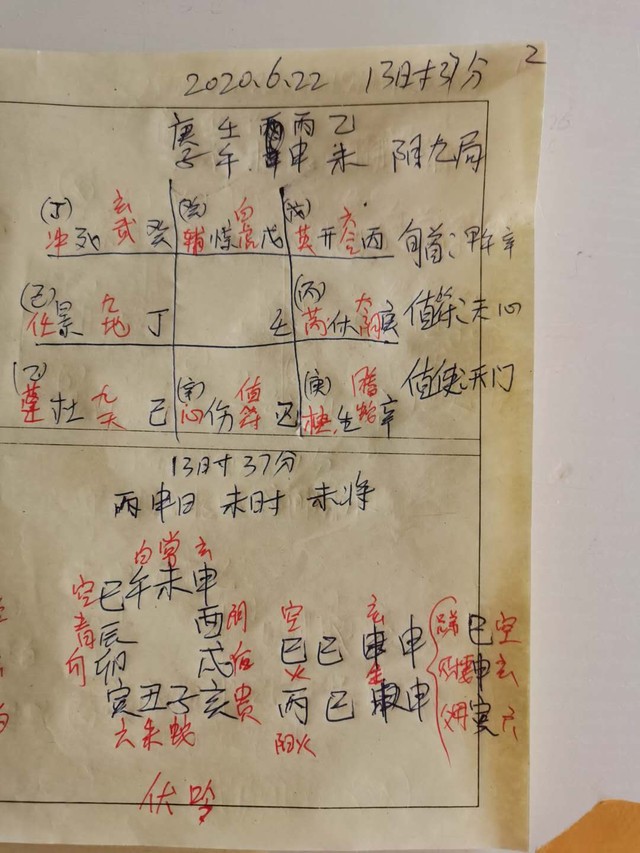 2
2020.6.22 13时37分
庚 壬 丙 乙
子 午 申 未 阴九局
(丁) 玄 (癸) 白 (戊) 六
冲 死 武 癸 辅 惊 虎 戊 英 开 合 丙 旬首:甲午辛
(己) 九 (丙) 太
任 景 地 丁 壬 芮 休 阴 庚 值符:天心
(乙) 九 (辛) 值 (庚) 腾
蓬 杜 天 己 心 伤 符 乙 柱 生 蛇 辛 值使:开门
13时37分
丙申日 未时 未将
白 常 玄
空 巳 午 未 申
青 辰 酉 阴 空 玄 巳 空
勾 卯 戌 后 巳 巳 申 申 财 申 玄
寅 丑 子 亥 贵 火 金 父母 寅 六
六 朱 蛇 丙 巳 申 申
阳火
伏吟